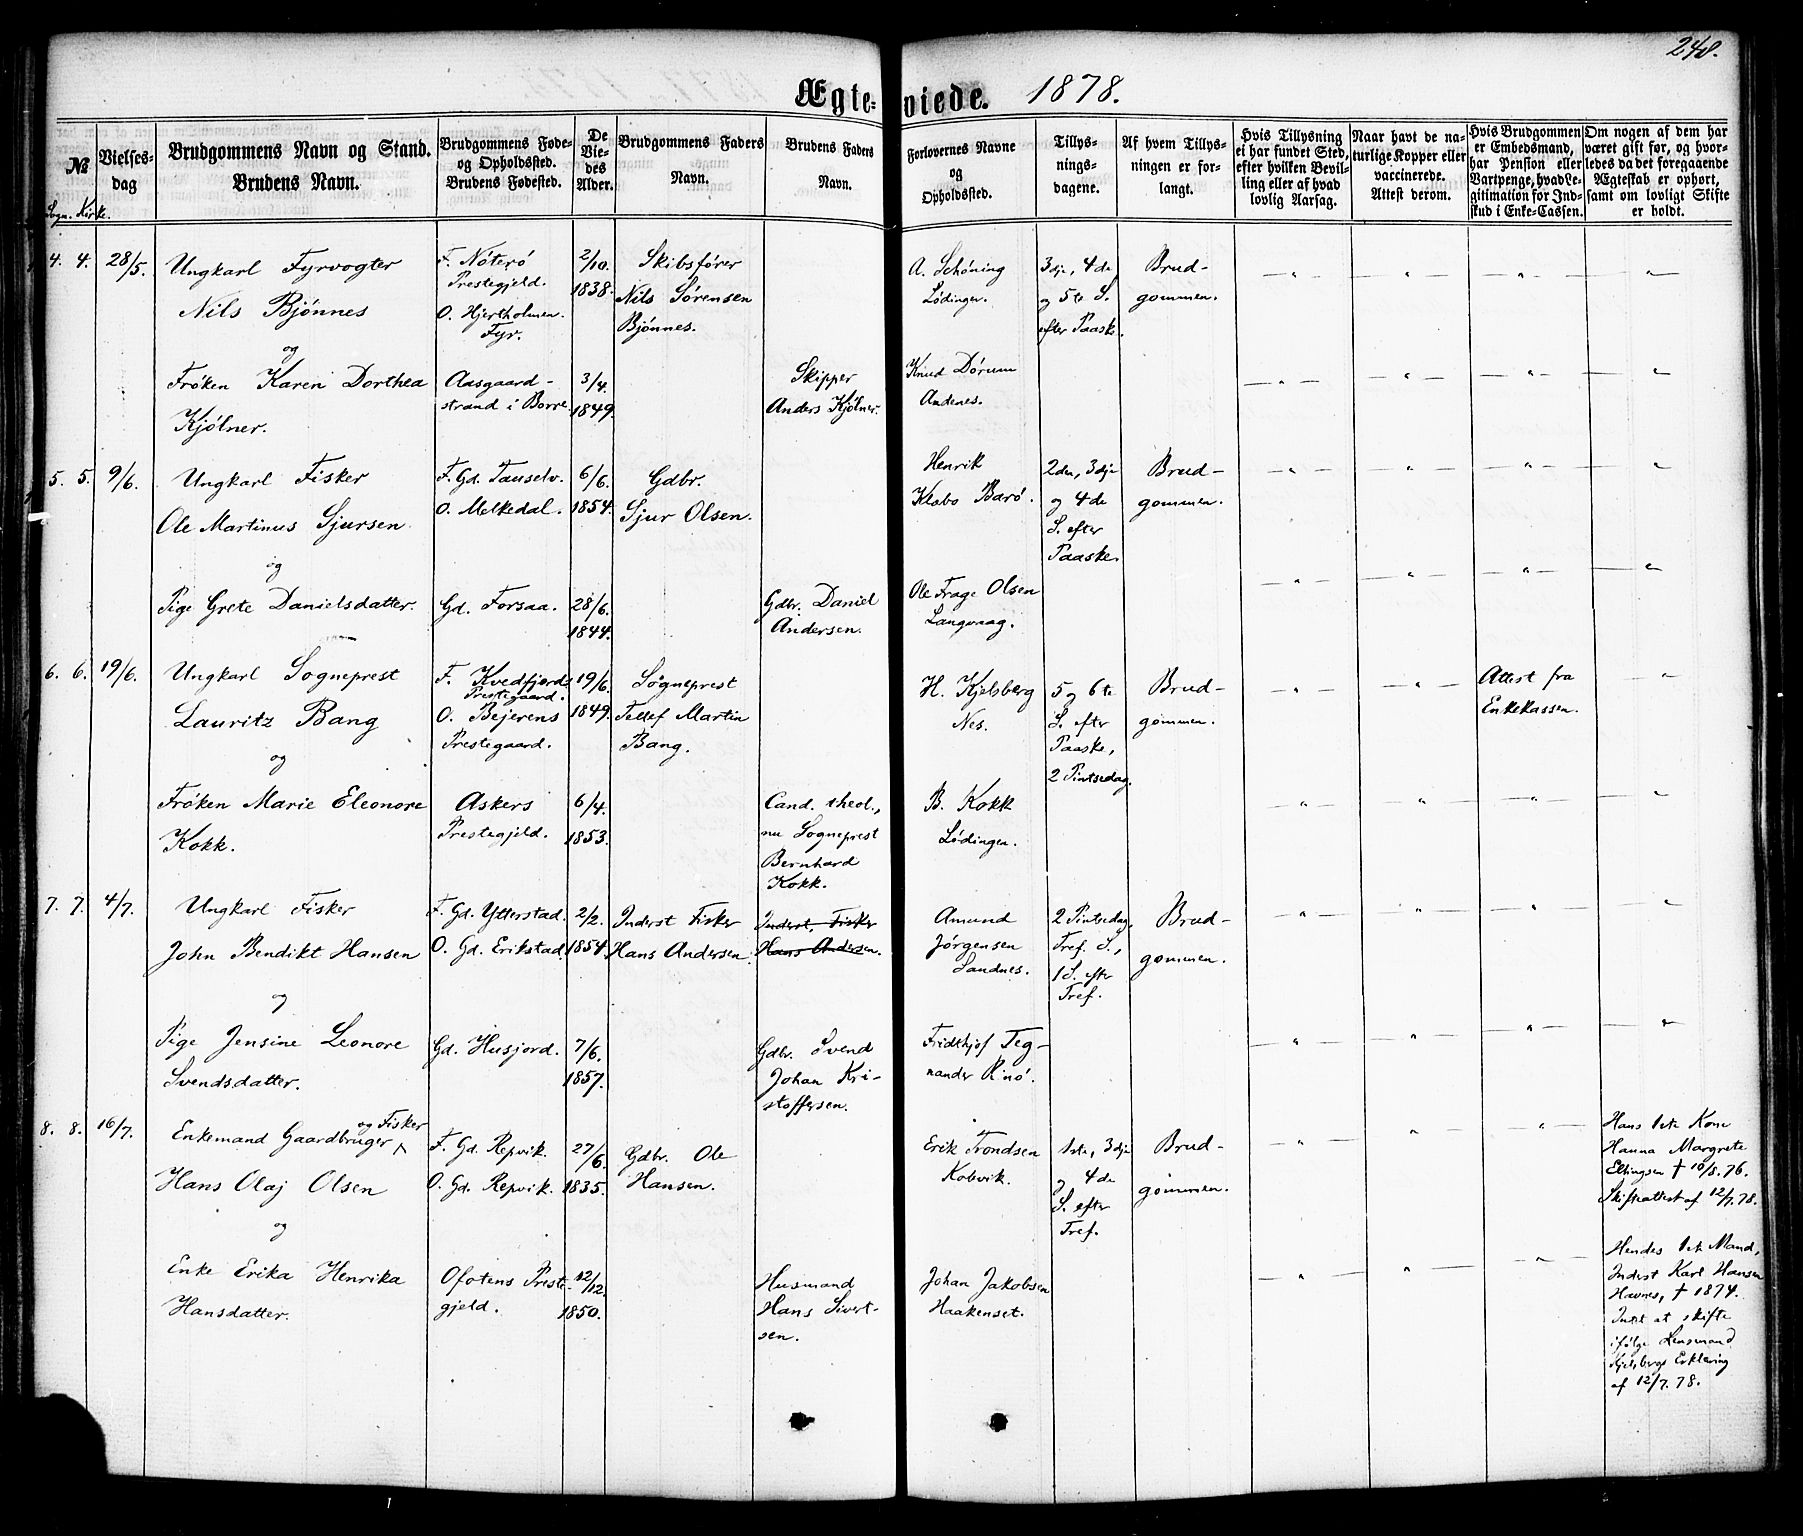 248.
Ægteviede. 1878.
№
Sogn. Kirke.
Vielses-
dag
Brudgommens Navn og Stand.
Brudens Navn.
Brudgommens Føde-
og Opholdssted.
Brudens Fødested.
De
Vie-
des
Alder.
Brudgommens Faders
Navn.
Brudens Faders
Navn.
Forlovernes Navne
og
Opholdssted.
Tillys-
nings-
dagene.
Af hvem Tillys-
ningen er for-
langt.
Hvis Tillysning
ei har fundet Sted,
efter hvilken Bevil-
ling eller af hvad
lovlig Aarsag.
Naar havt de na-
turlige Kopper eller
vaccinerede.
Attest derom.
Hvis Brudgommen
er Embedsmand,
har Pension eller
Vartpenge, hvad Le-
gitimation for Ind-
skud i Enke-Cassen.
Om nogen af dem har
været gift før, og hvor-
ledes da det foregaaende
Ægteskab er ophørt,
samt om lovligt Skifte
er holdt.
4. 4. 28/5.
Ungkarl Fyrvogter
Nils Bjønnes
og
Frøken Karen Dorthea
Kjølner.
F. Nøterø
Prestegjeld.
O. Hjertholmen
Fyr.
Aasgaard-
strand i Borre.
2/10.
1838.
3/4.
1849.
Skibsfører
Nils Sørensen
Bjønnes.
Skipper
Anders Kjølner.
A. Schøning
Lødingen.
Knud Dørum
Andenes.
3dje, 4de
og 5te S.
efter Paaske.
Brud-
gommen.
5. 5. 9/6.
Ungkarl Fisker
Ole Martinus Sjursen
og
Pige Grete Danielsdatter.
F. Gd. Tauselv.
O. Melkedal.
Gd. Forsaa.
6/6.
1854.
28/6.
1844.
Gdbr.
Sjur Olsen.
Gdbr. Daniel
Andersen.
Henrik
Klabo Barø.
Ole Frage Olsen
Langvaag.
2den, 3dje
og 4de
S. efter
Paaske.
Brud-
gommen.
6. 6. 19/6.
Ungkarl Sogneprest
Lauritz Bang
og
Frøken Marie Eleonore
Kokk.
F. Kvedfjords
Prestegaard.
O. Bejerens
Prestegaard.
Askers
Prestegjeld.
19/6.
1849.
6/4.
1853.
Sogneprest
Tellef Martin
Bang.
Cand. theol.,
nu Sogneprest
Bernhard
Kokk.
H. Kjelsberg
Nes.
B. Kokk
Lødingen.
5 og 6te
S. efter
Paaske,
2 Pintsedag.
Brud-
gommen.
Attest fra
Enkekassen.
7. 7. 4/7.
Ungkarl Fisker
John Bendikt Hansen
og
Pige Jensine Leonore
Svendsdatter.
F. Gd. Ytterstad.
O. Gd. Erikstad.
Gd. Husjord.
2/2.
1854.
7/6.
1857.
Inderst Fisker
Hans Andersen.
Inderst, Fisker
Hans Andersen.
Gdbr. Svend
Johan Kri-
stoffersen.
Amund
Jørgensen
Sandnes.
Fridthjof Teg-
nander Rinø.
2 Pintsedag,
Tref. S.,
1 S. efter
Tref.
Brud-
gommen.
8. 8. 16/7.
Enkemand Gaardbruger og Fisker
Hans Olaj Olsen
og
Enke Erika Henrika
Hansdatter.
F. Gd. Repvik.
O. Gd. Repvik.
Ofotens Preste-
gjeld.
27/6.
1835.
12/12.
1850.
Gdbr. Ole
Hansen.
Husmand
Hans Sivert-
sen.
Erik Trondsen
Kobvik.
Johan Jakobsen
Haakenset.
1ste, 3dje
og 4de
S. efter
Tref.
Brud-
gommen.
Hans 1ste Kone
Hanna Margrete
Ellingsen † 10/5. 76.
Skifteattest af 12/7. 78.
Hendes 1ste Mand,
Inderst Karl Hansen
Havnes, † 1874.
Intet at skifte
ifølge Lensmand
Kjelsbergs Erklæring
af 12/7. 78.